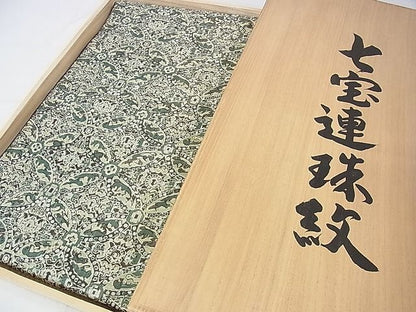 七宝連珠紋